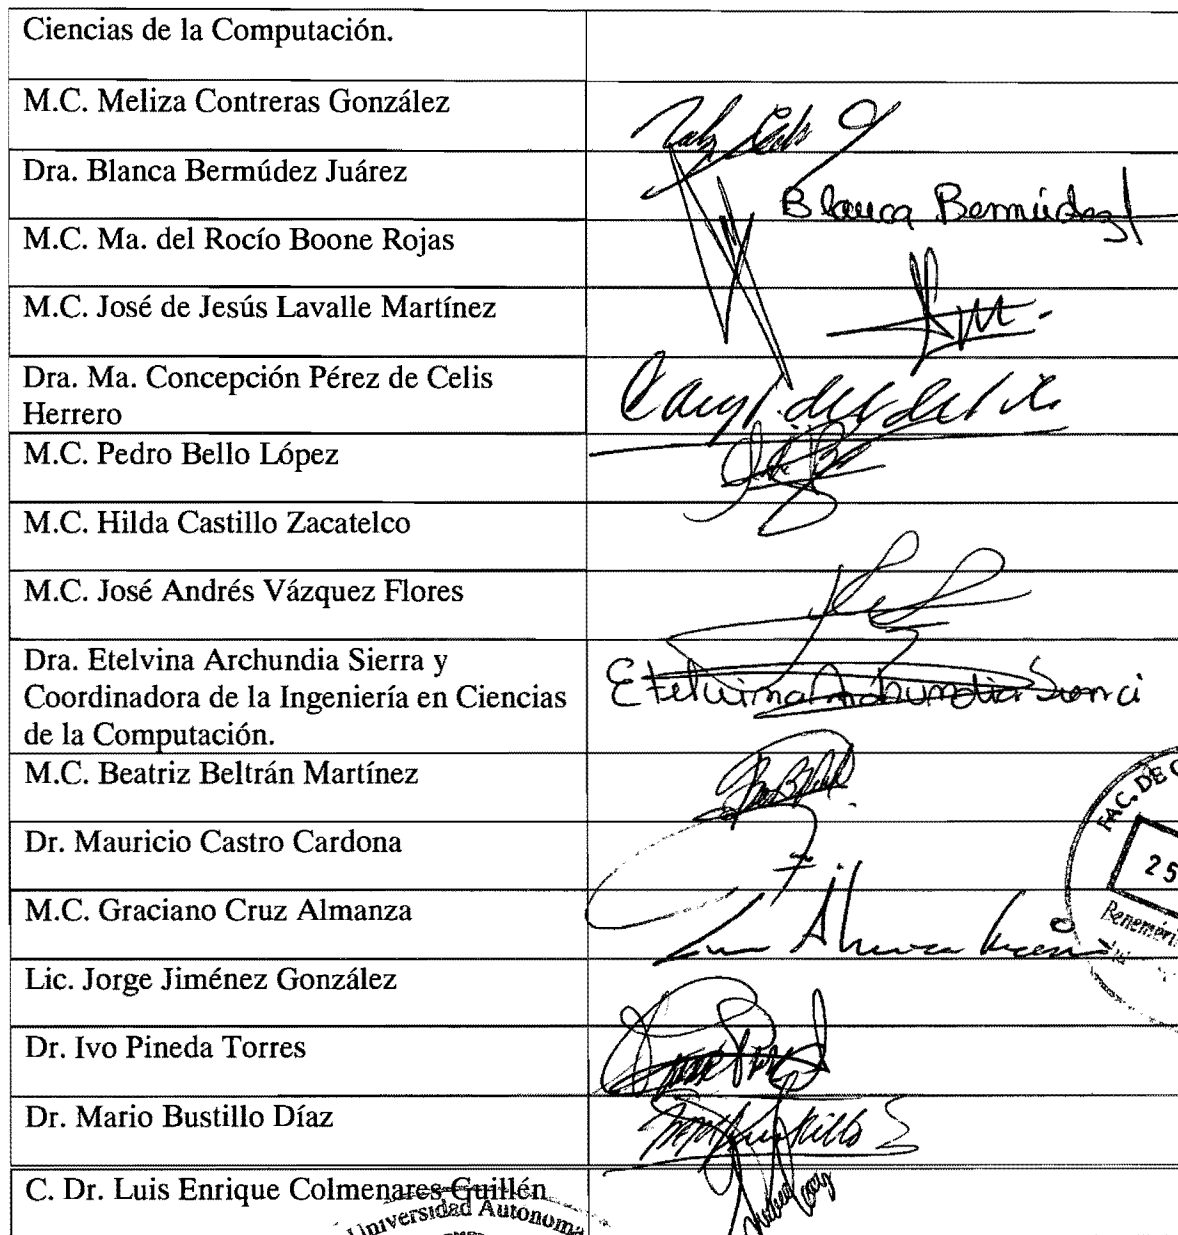 Ciencias de la Computación.
M.C. Meliza Contreras González
Dra. Blanca Bermúdez Juárez
Blanca Bermúdez
M.C. Ma. del Rocío Boone Rojas
M.C. José de Jesús Lavalle Martínez
Dra. Ma. Concepción Pérez de Celis
Herrero
M.C. Pedro Bello López
M.C. Hilda Castillo Zacatelco
M.C. José Andrés Vázquez Flores
Dra. Etelvina Archundia Sierra y
Coordinadora de la Ingeniería en Ciencias
de la Computación.
Etelvina Archundia Sierra
M.C. Beatriz Beltrán Martínez
FAC. DE C
Dr. Mauricio Castro Cardona
25
M.C. Graciano Cruz Almanza
Benemérit
Lic. Jorge Jiménez González
Dr. Ivo Pineda Torres
Dr. Mario Bustillo Díaz
C. Dr. Luis Enrique Colmenares Guillén
Universidad Autonoma